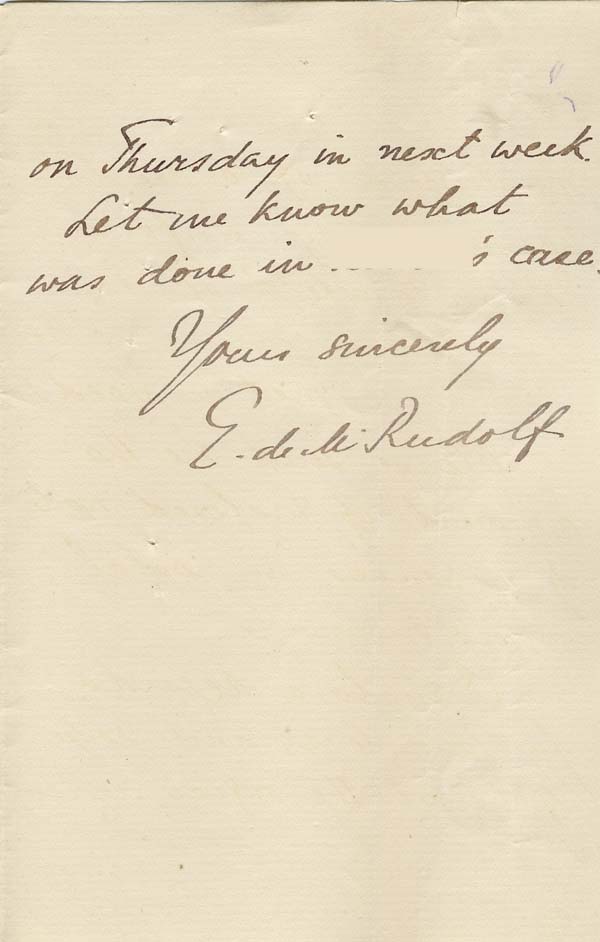 on Thursday in next week.
Let me know what
was done in 's case.
Yours sincerely
E. de M. Rudolf